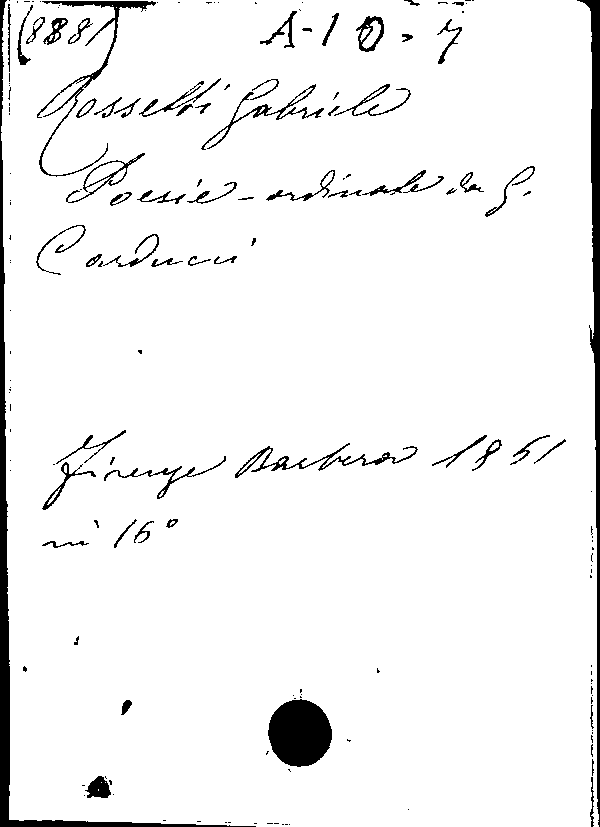 (8881) A-10-7
Rossetti Gabriele
Poesie - ordinate da G.
Carducci
Firenze Barbera 1851
in 16°